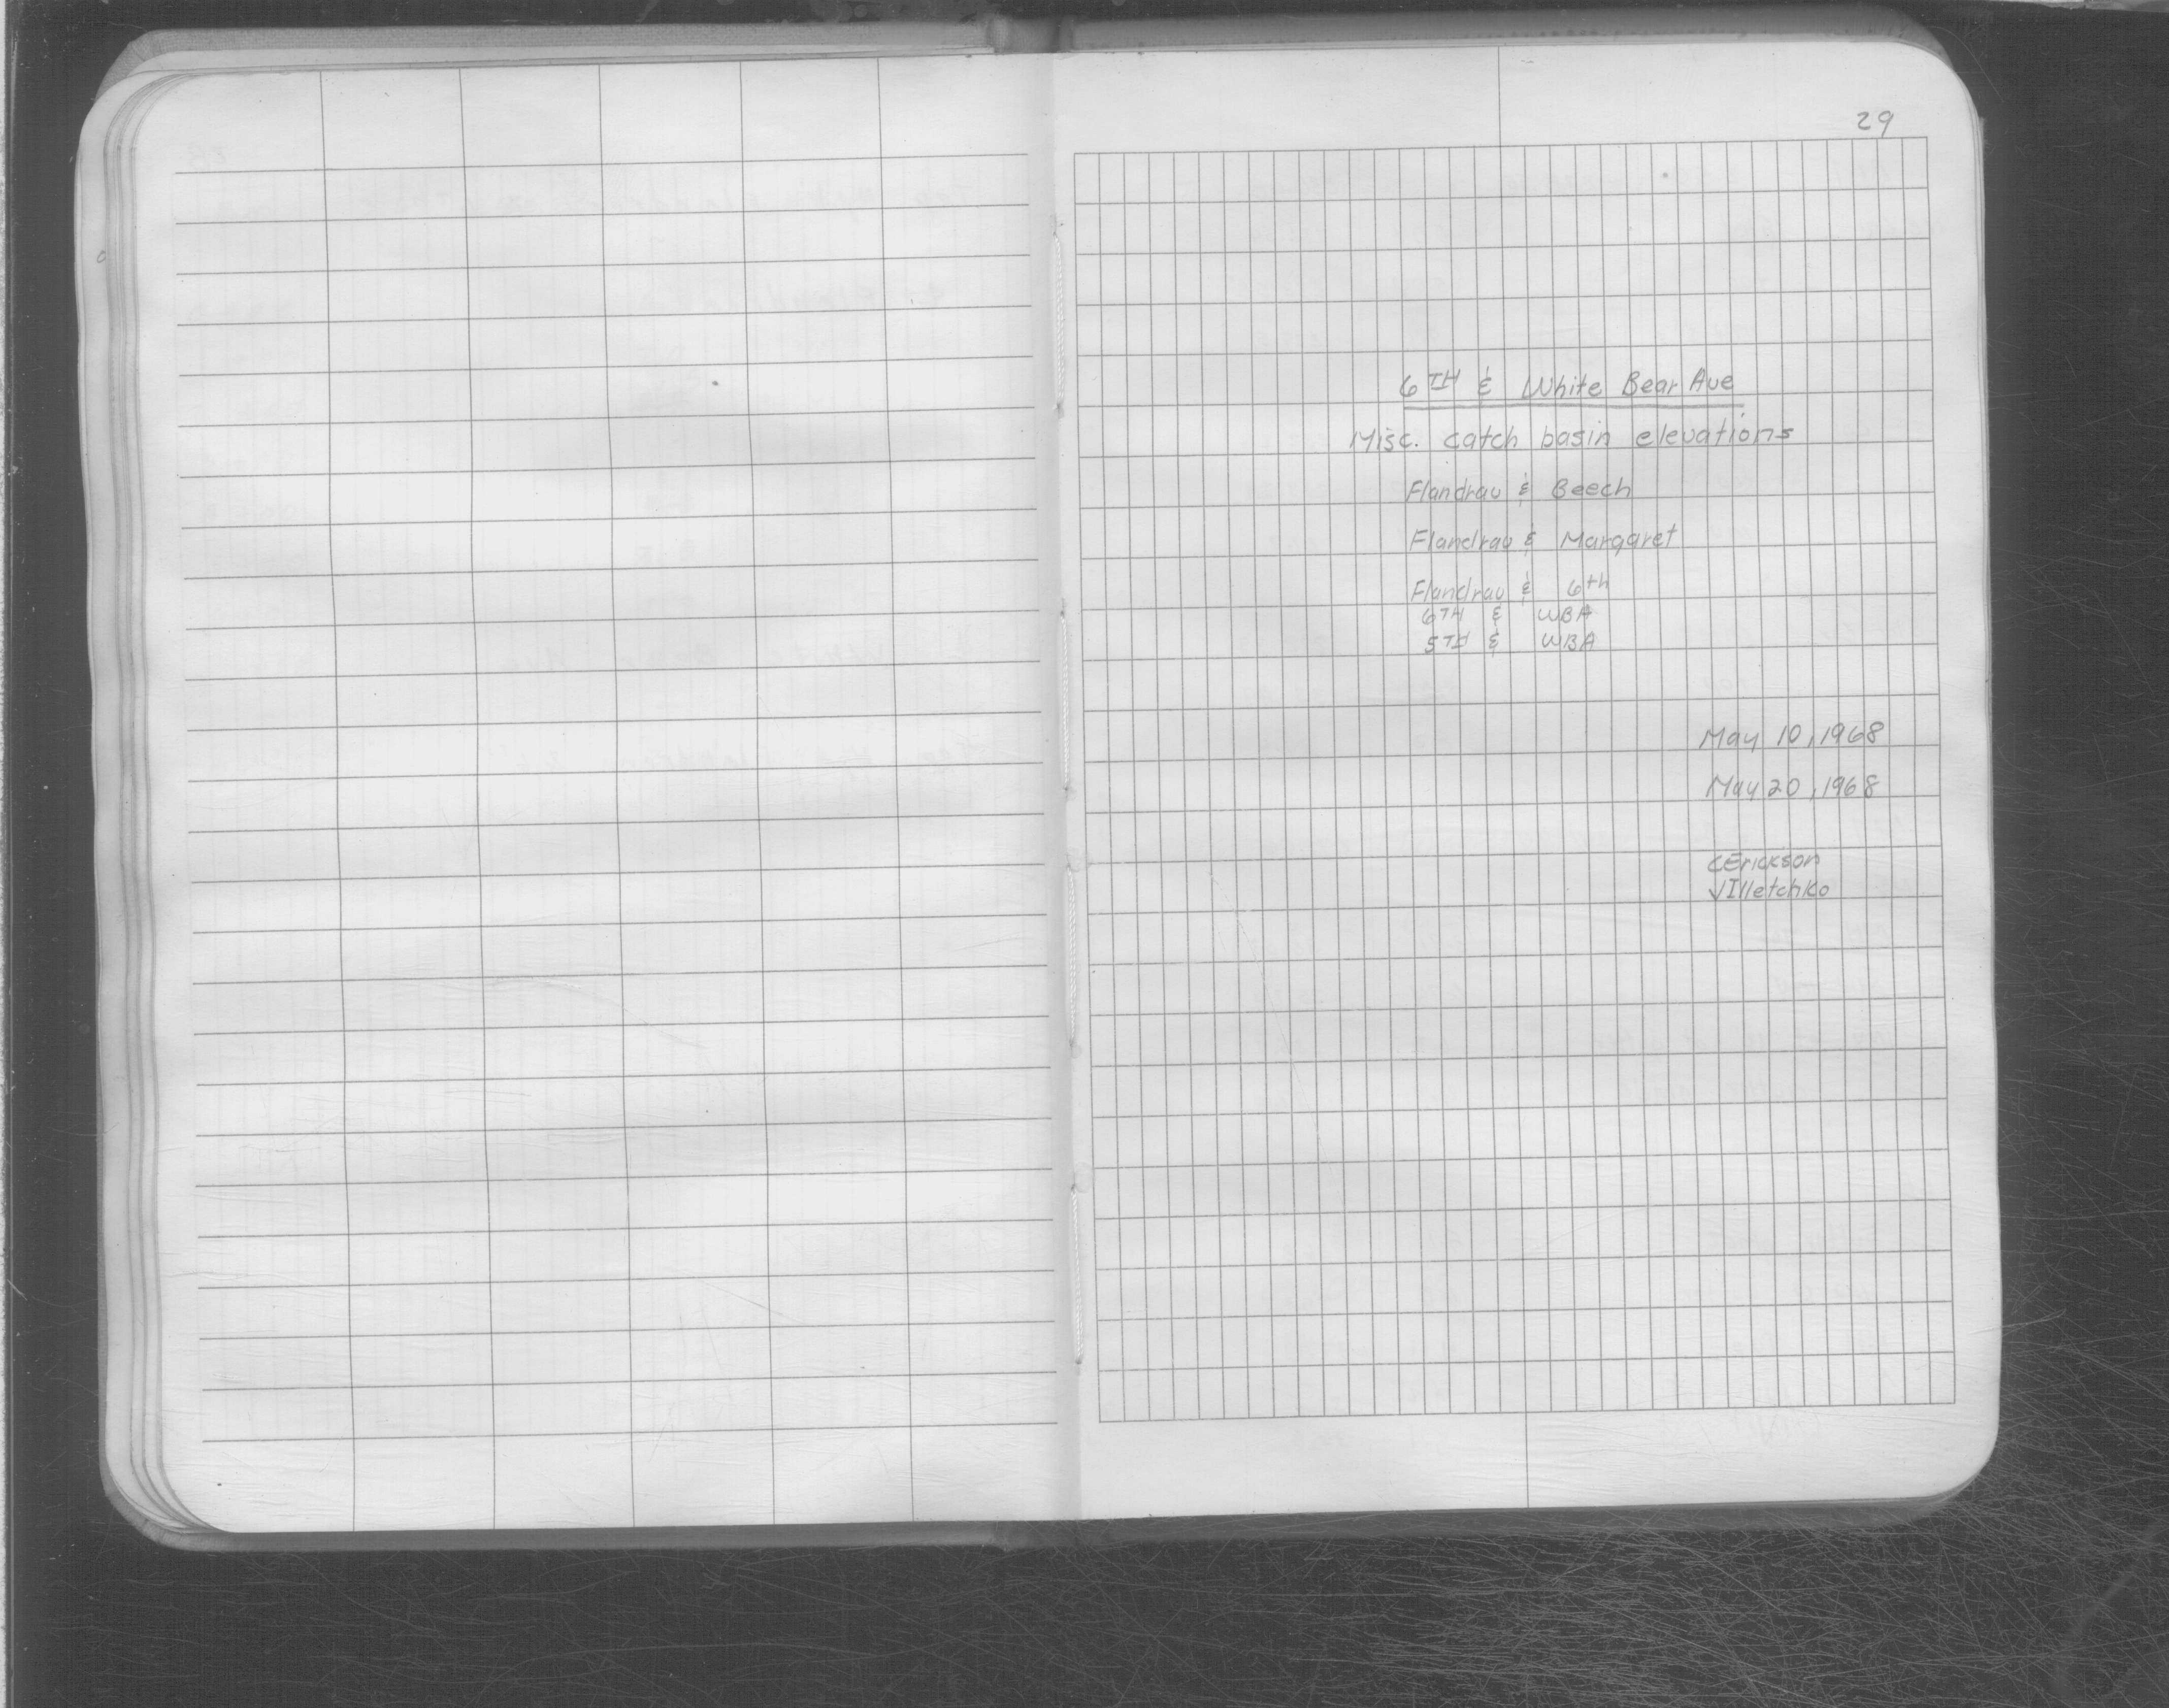 29
6TH & White Bear Ave
Misc. catch basin elevations
Flandrau & Beech
Flandrau & Margaret
Flandrau & 6th
6TH & WBA
5TH & WBA
May 10, 1968
May 20, 1968
CErickson
VIlletchko